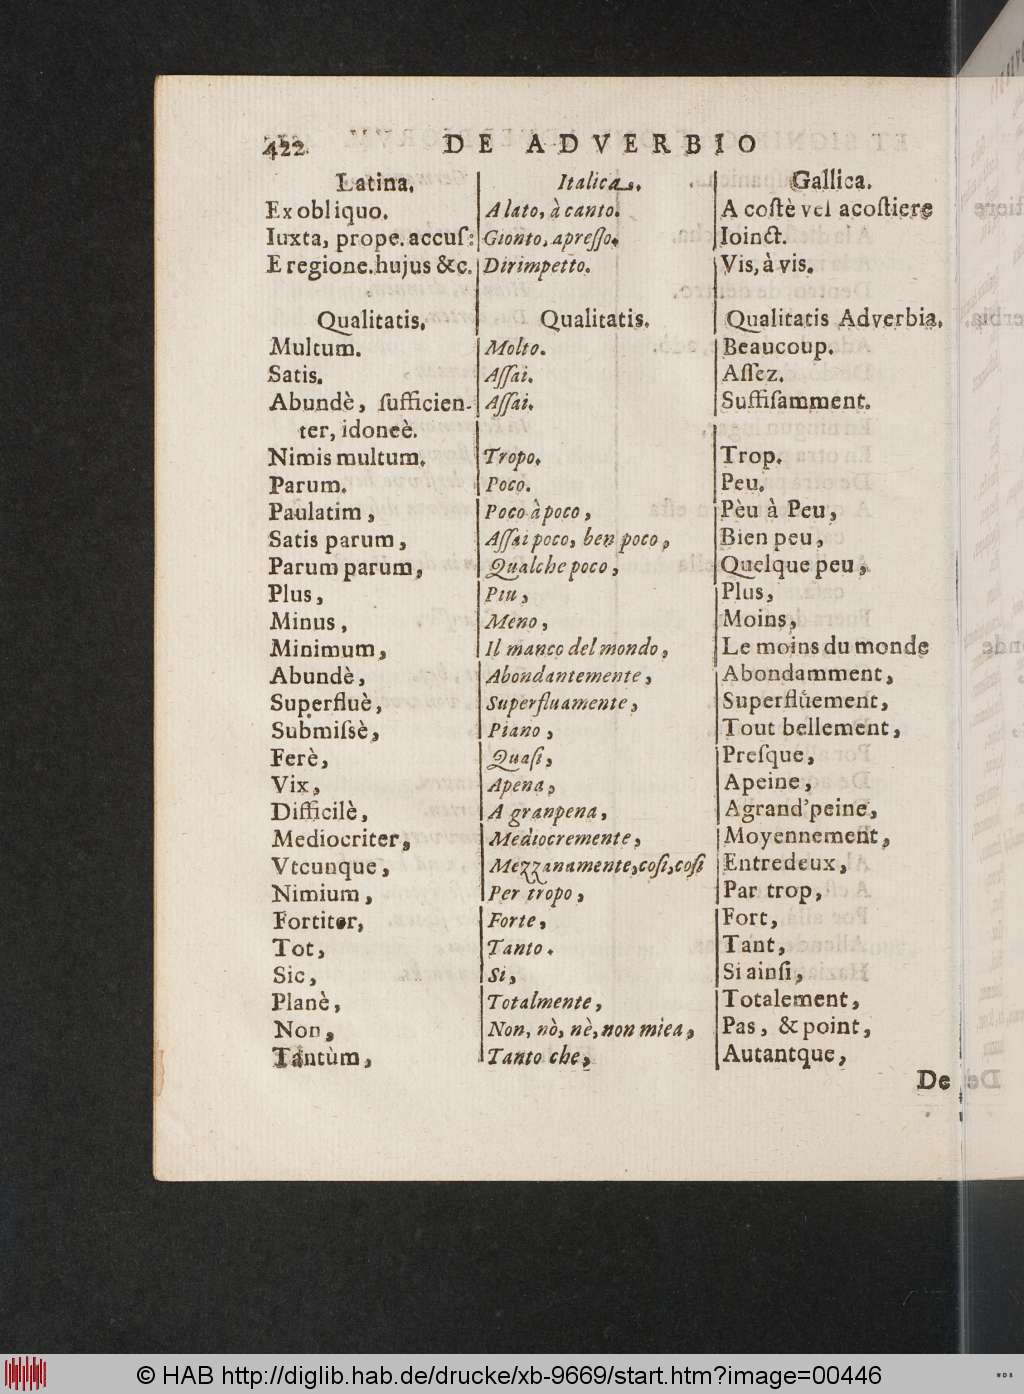 422. DE ADVERBIO
Latina. Italica. Gallica.
Ex obliquo. A lato, à canto. A coſtè vel acoſtiere
Iuxta, prope. accuſ: Gionto, apreſſo. Ioinct.
E regione. hujus &c. Dirimpetto. Vis, à vis.
Qualitatis. Qualitatis. Qualitatis Adverbia.
Multum. Molto. Beaucoup.
Satis. Aſſai. Aſſez.
Abundè, ſufficien- Aſſai. Suffiſamment.
ter, idoneè.
Nimis multum. Tropo. Trop.
Parum. Poco. Peu.
Paulatim, Poco à poco, Pèu à Peu,
Satis parum, Aſſai poco, ben poco, Bien peu,
Parum parum, Qualche poco, Quelque peu,
Plus, Piu, Plus,
Minus, Meno, Moins,
Minimum, Il manco del mondo, Le moins du monde
Abundè, Abondantemente, Abondamment,
Superfluè, Superfluamente, Superflüement,
Submiſsè, Piano, Tout bellement,
Ferè, Quaſi, Preſque,
Vix, Apena, Apeine,
Difficilè, A granpena, Agrand'peine,
Mediocriter, Mediocremente, Moyennement,
Vtcunque, Mezzanamente, coſi, coſi Entredeux,
Nimium, Per tropo, Par trop,
Fortiter, Forte, Fort,
Tot, Tanto. Tant,
Sic, Si, Si ainſi,
Planè, Totalmente, Totalement,
Non, Non, nò, nè, non miea, Pas, & point,
Tantùm, Tanto che, Autantque,
De
© HAB http://diglib.hab.de/drucke/xb-9669/start.htm?image=00446